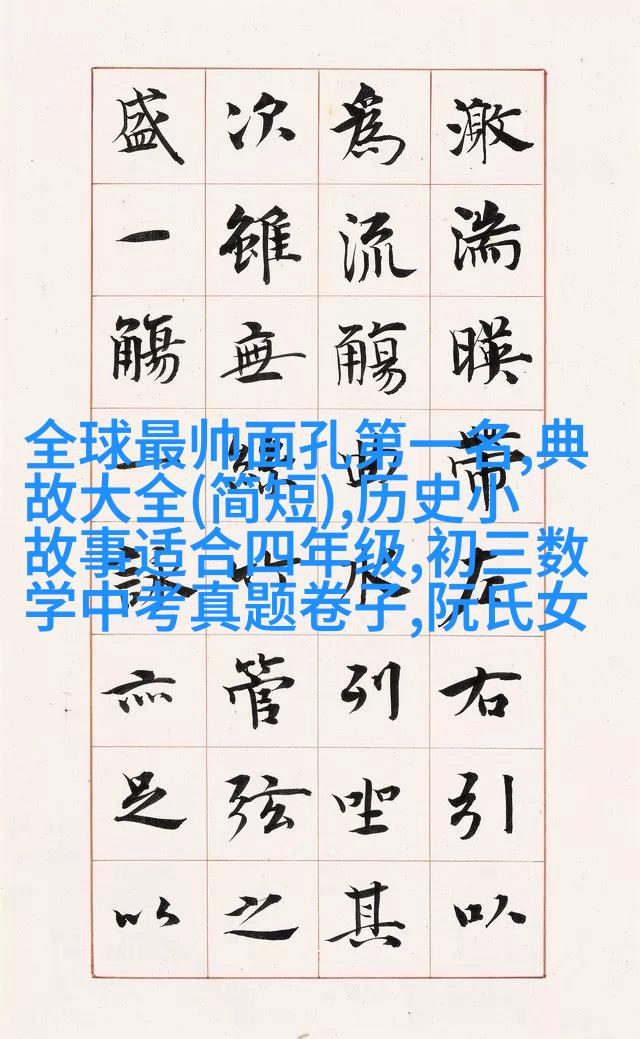 激湍暎帶左右引以
爲流觴曲水列坐其
次雖無絲竹管弦之
盛一觴一詠亦足以
全球最帅面孔第一名,典
故大全(简短),历史小
故事适合四年级,初三数
学中考真题卷子,阮氏女